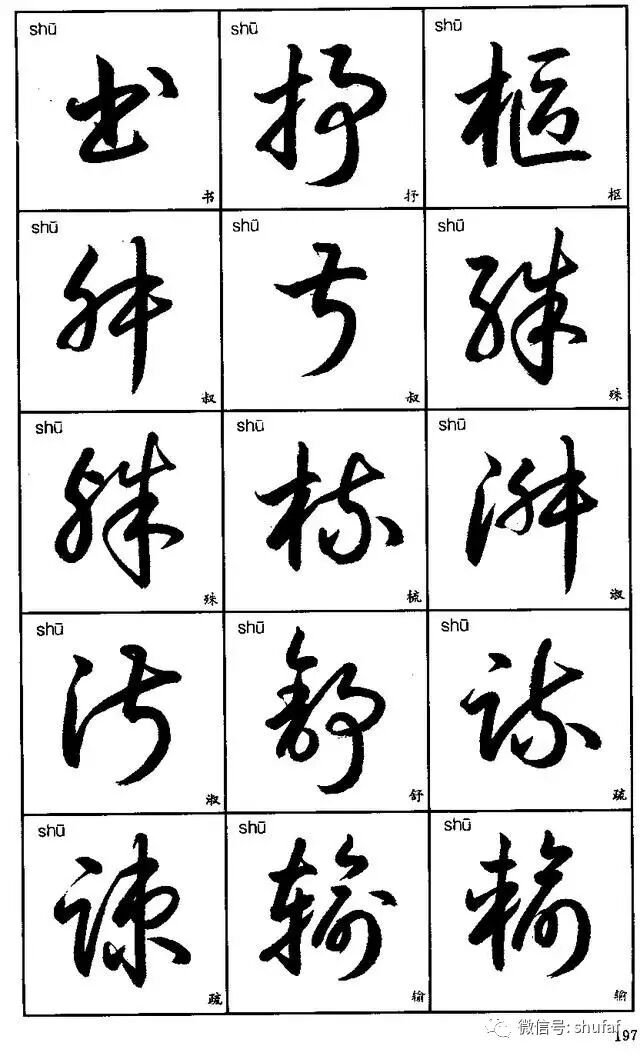 shū shū shū
书 抒 枢
shū shū shū
叔 叔 殊
shū shū shū
殊 梳 淑
shū shū shū
淑 舒 疏
shū shū shū
疏 输 输
微信号: shufaf
197